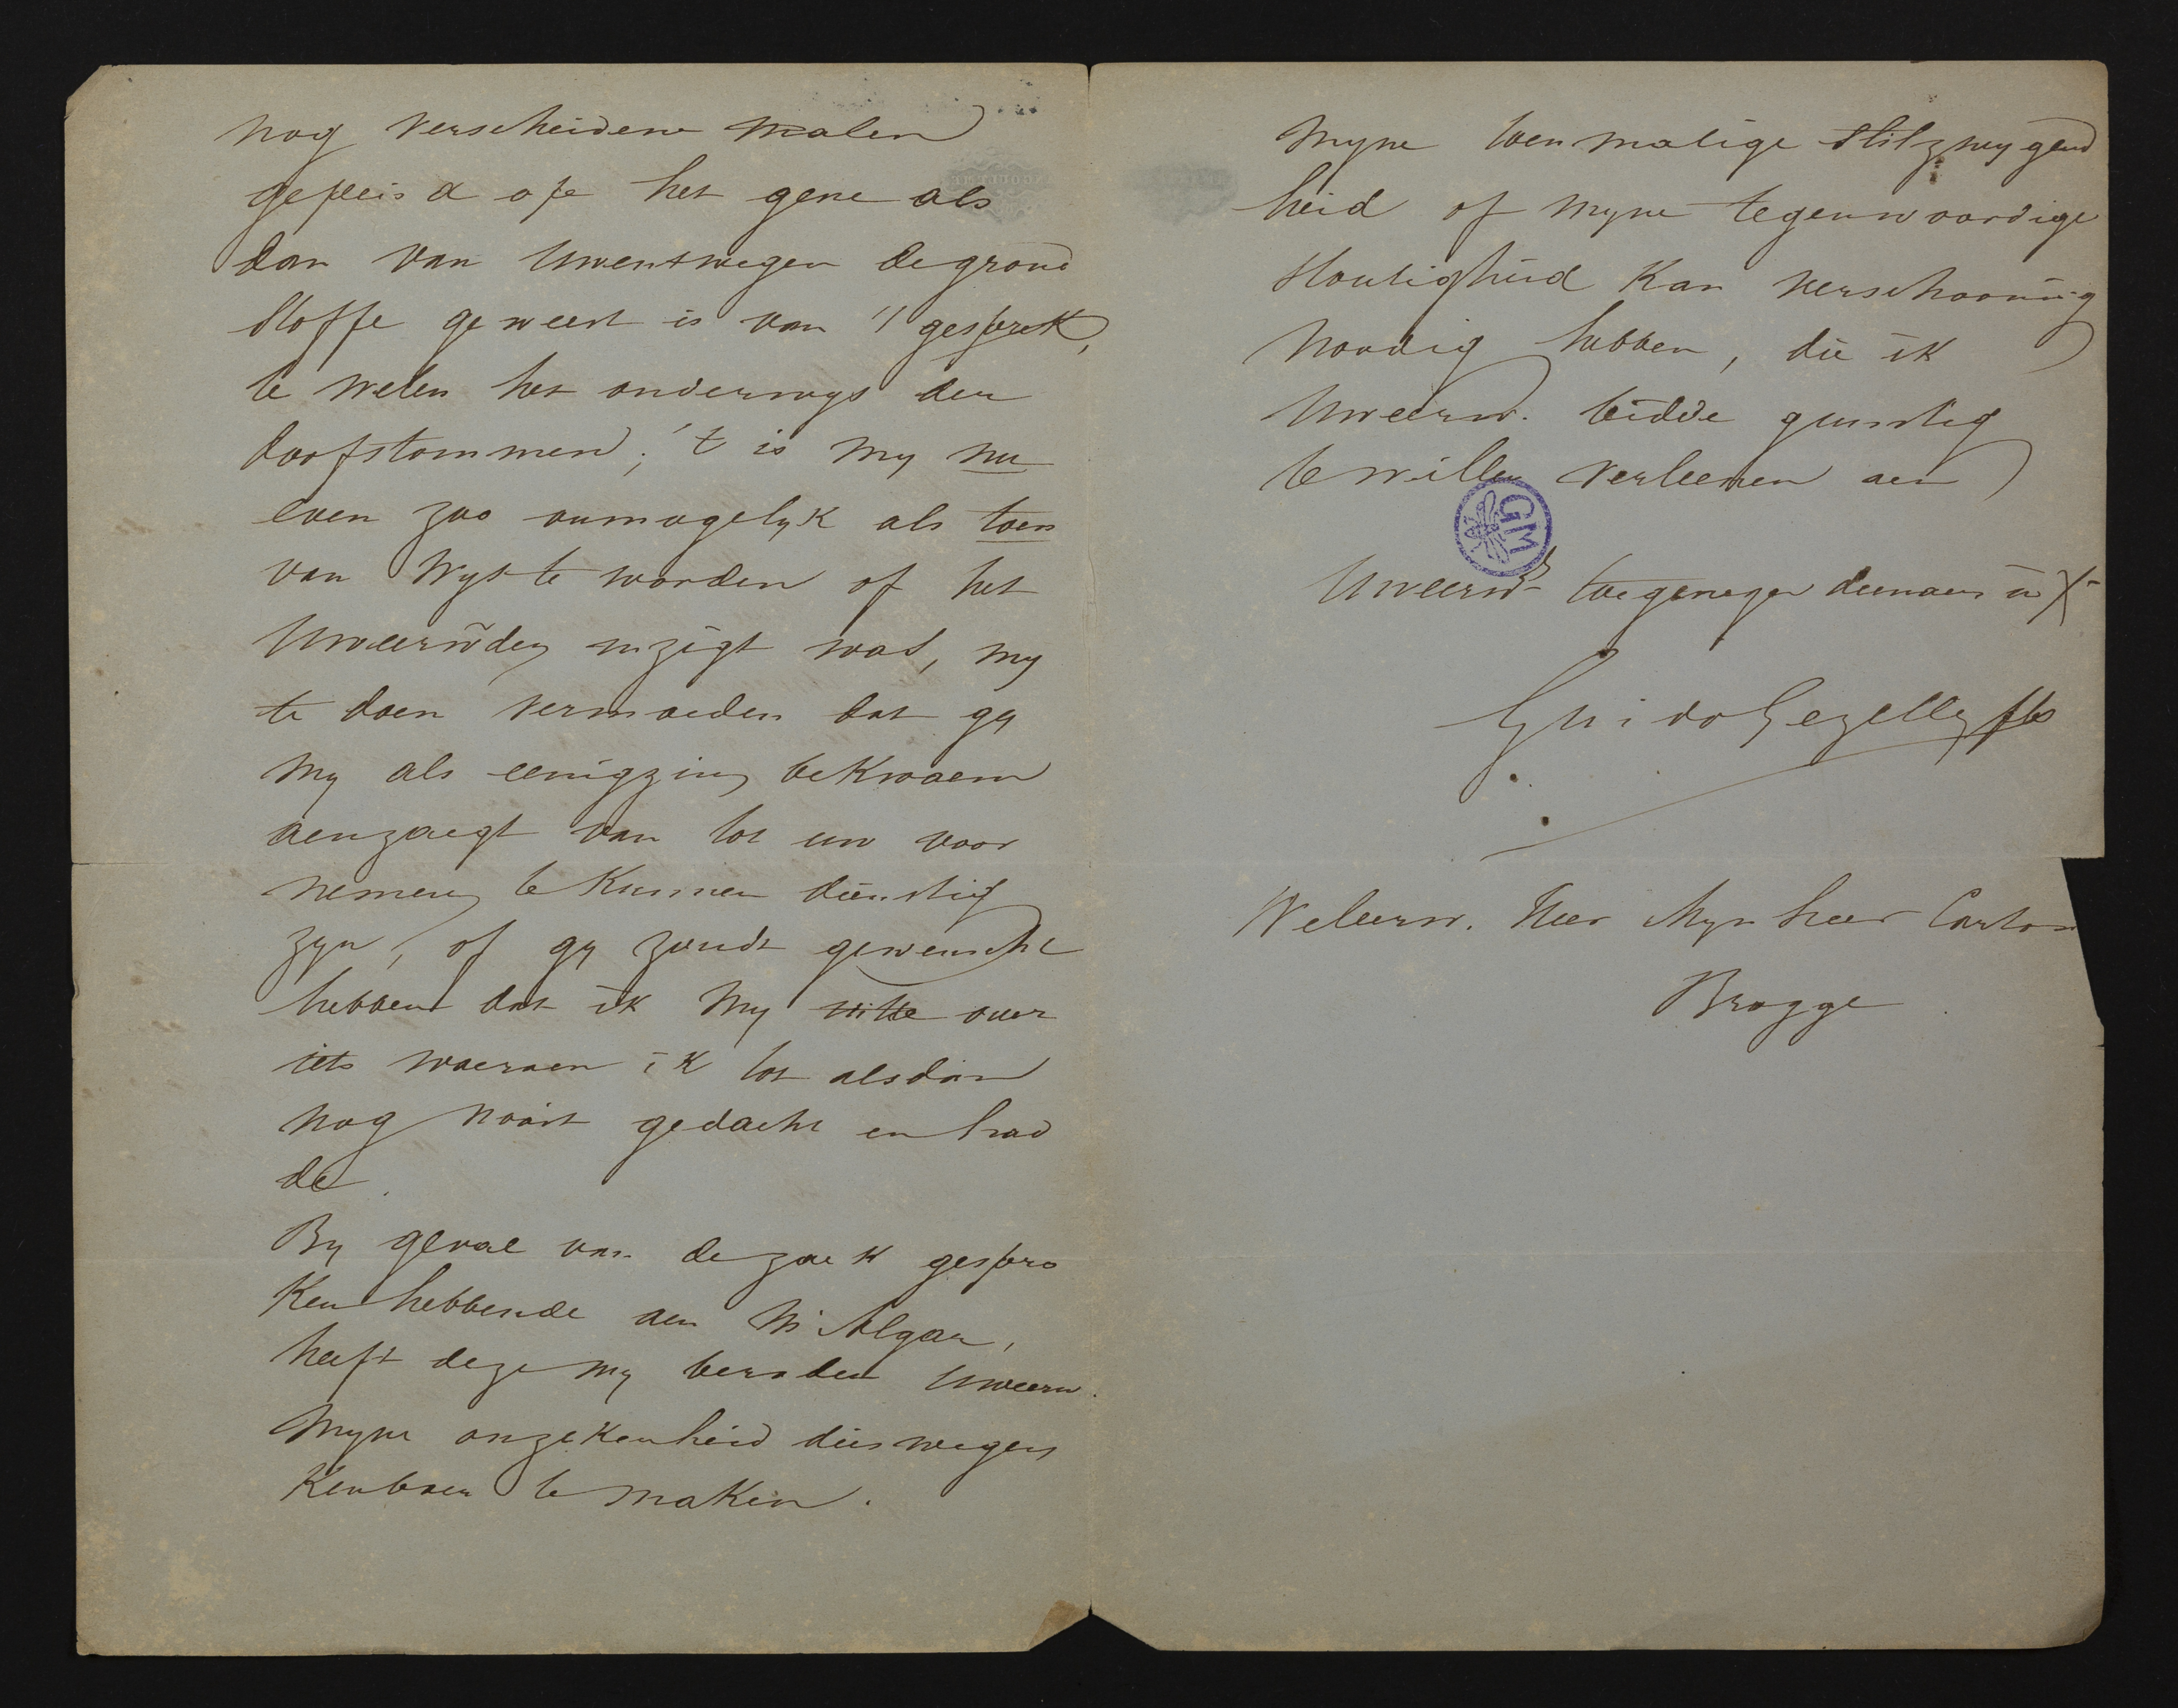 nog verscheidene malen
gepeisd op het gene als
dan van Uwentwegen de grond
stoffe geweest is van 't gesprek,
te weten het onderwys der
doofstommen; 't is my nu
even zoo onmogelyk als toen
van wys te worden of het
Uweerw̃den inzigt was, my
te doen vermoeden dat gy
my als eenigzins bekwaem
aenzaegt van tot uw voor
nemens te kunnen dienstig
zyn, of gy zoudt gewenscht
hebben dat ik my uitte over
iets waeraen ik tot alsdan
nog nooit gedacht en had
de.
By geval van de zaek gespro
ken hebbende aen Mr Algar,
heeft deze my beraden Uweerw.
Myne onzekerheid dieswegens
kenbaer te maken.
Myne toenmalige stilzwygend
heid of myne tegenwoordige
stoutigheid kan verschooning
noodig hebben, die ik
Uweerw. bidde gunstig
te willen verleenen aen
GM
Uweerwds toegenegen dienaer in X
Guido Gezelle pbs
Weleerw. Heer Mynheer Carton
Brugge